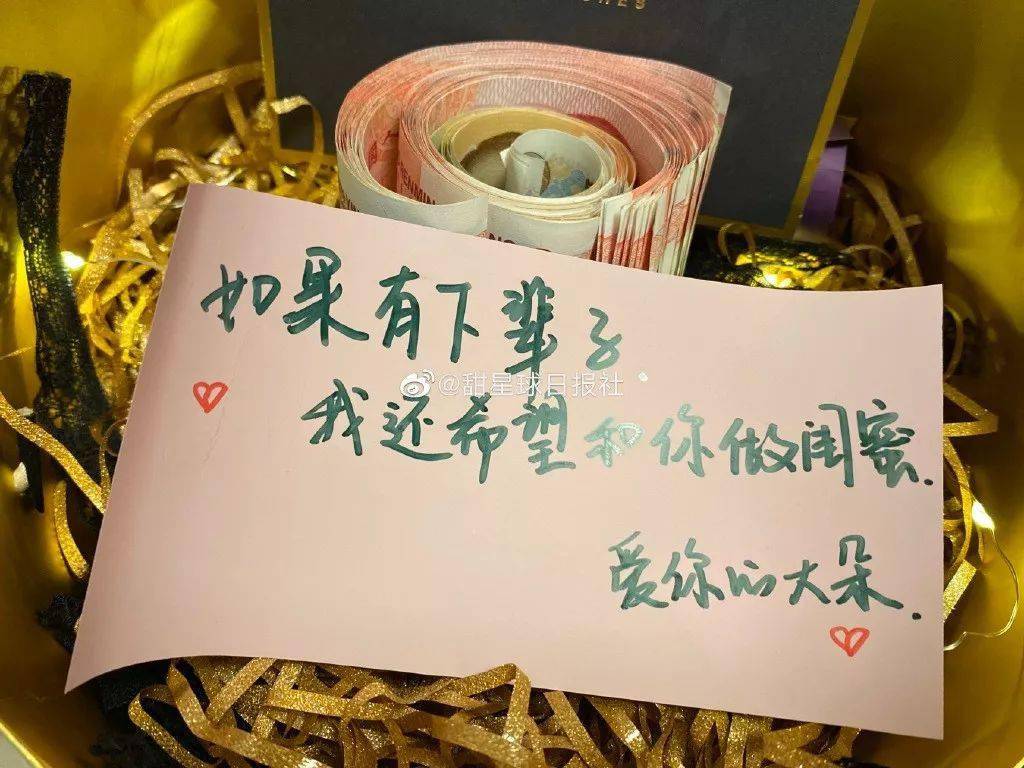 如果有下辈子
@甜星球日报社
我还希望和你做闺蜜.
爱你的大朵.